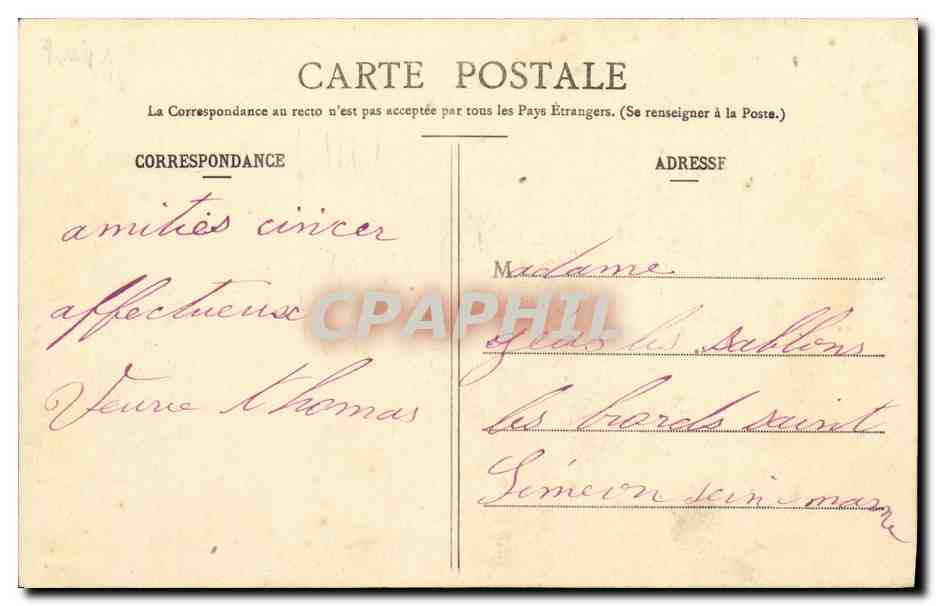 CARTE POSTALE
La Correspondance au recto n'est pas acceptée par tous les Pays Étrangers. (Se renseigner à la Poste.)
CORRESPONDANCE
amities cincer
affectueux
Veuve thomas
ADRESSE
Madame
les Sablons
les bords saint
Siméon sein marne
CPAPHIL